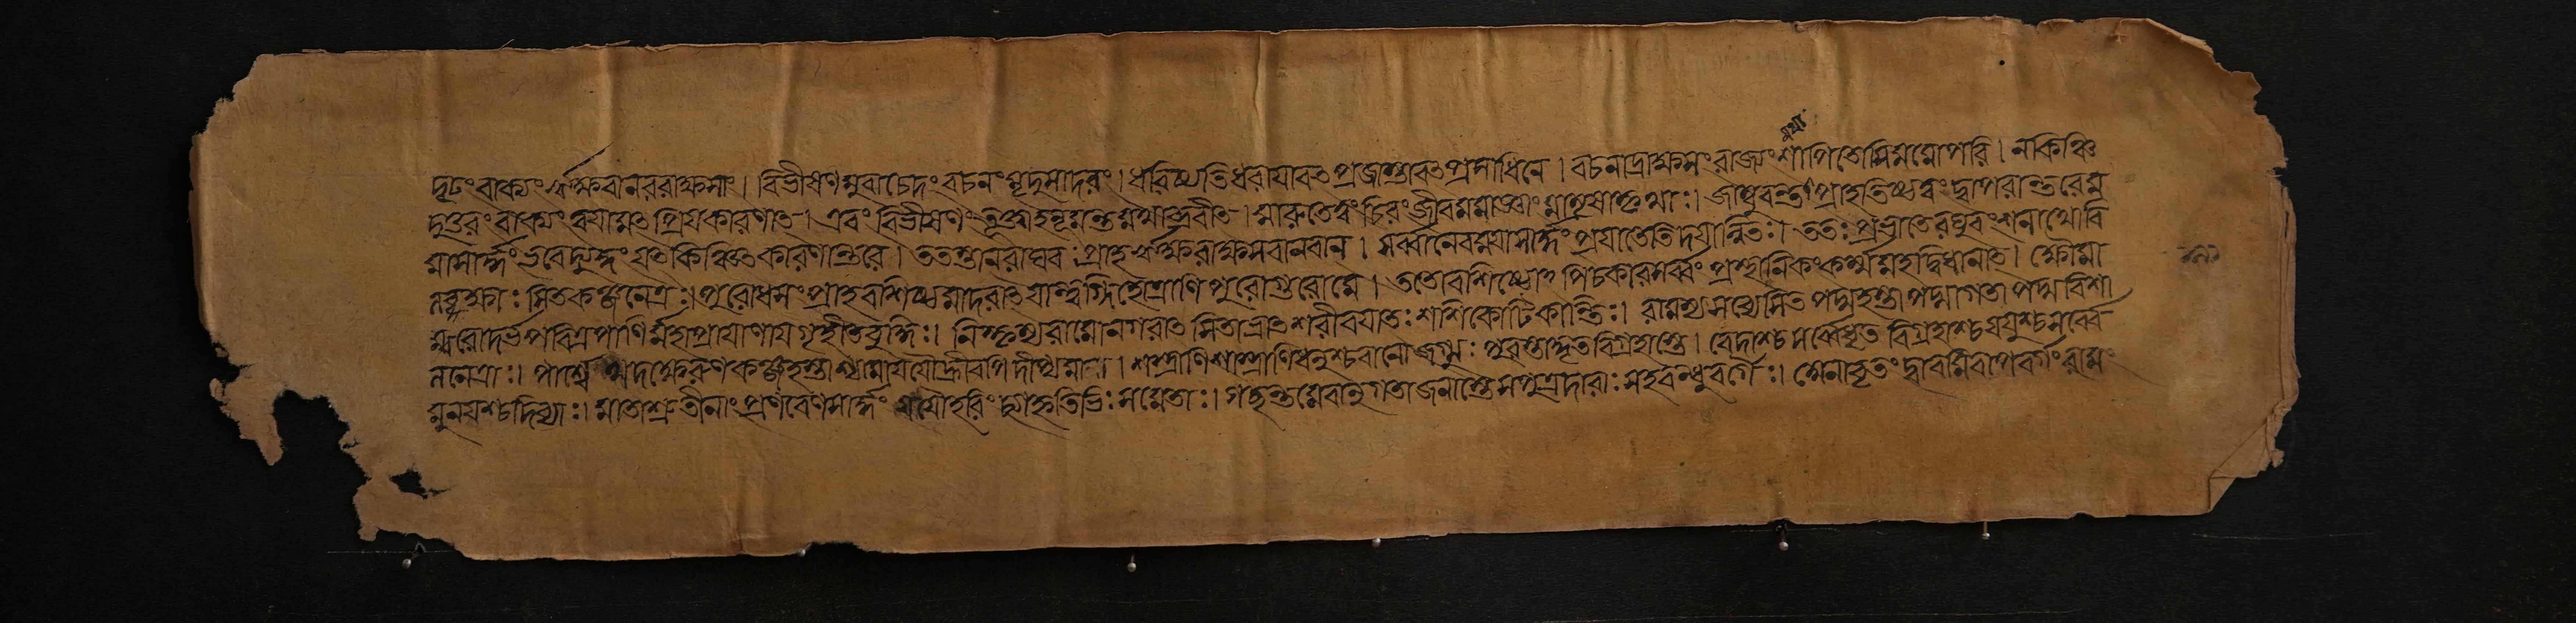 দৃঢ়ং বাক্যং ঋক্ষবানররাক্ষসাং। বিভীষণমুবাচেদং বচনং মৃদুসাদরং। ধরিষ্যতি ধরা যাবৎ প্রজাস্তাবৎ প্রসাধিনে। বচনাদ্রাক্ষসং রাজ্যং শাপিতোসি মমোপরি। ন কিঞ্চি
দুত্তরং বাক্যং ত্বয়া মৎপ্রিয়কারণাৎ। এবং বিভীষণং তূক্ত্বা হনূমন্তমথাব্রবীৎ। মারুতে ত্বং চিরং জীব মমাজ্ঞাং মা মৃষা কৃথাঃ। জাম্ববন্তং প্রাহ তিষ্ঠ ত্বং দ্বাপরান্তরে ম
য়া সার্দ্ধং ভবেদ্যুদ্ধং যৎকিঞ্চিৎ কারণান্তরে। ততস্তান্ রাঘবঃ প্রাহ ঋক্ষরাক্ষসবানরান্। সর্ব্বানেব ময়া সার্দ্ধং প্রয়াতেতি দয়ান্বিতঃ। ততঃ প্রভাতে রঘুবংশনাথো বি
বক্ষাঃ সিতকঞ্জনেত্রঃ। পুরোধসং প্রাহ বশিষ্ঠমাদরাৎ যান্ত্বগ্নিহোত্রাণি পুরো গুরো মে। ততো বশিষ্ঠোঽপি চকার সর্ব্বং প্রস্থানিকং কর্ম্ম মহদ্বিধানাৎ। ক্ষৌমা
ম্বরো দর্ভপবিত্রপাণির্ম্মহাপ্রয়াণায় গৃহীতবুদ্ধিঃ। নিষ্ক্রম্য রামো নগরাৎ সিতাভ্রাৎ শশীব যাতঃ শশিকোটিকান্তিঃ। রামস্য সব্যে সিতপদ্মহস্তা পদ্মা গতা পদ্মবিশা
লনেত্রা। পার্শ্বে অথ দক্ষেরুণকঞ্জহস্তা শ্যামা যযৌ ভূরপি দীপ্যমানা। শস্ত্রাণি শাস্ত্রাণি ধনুশ্চ বাণা জগ্মুঃ পুরস্তাদ্ধৃতবিগ্রহাস্তে। বেদাশ্চ সর্ব্বে ধৃতবিগ্রহাশ্চ যযুশ্চ সর্ব্বে
মুনয়শ্চ দিব্যাঃ। মাতা শ্রুতীনাং প্রণবেণ সার্দ্ধং যযৌ হরিং ব্যাহৃতিভিঃ সমেতা। গচ্ছন্তমেবানুগতা জনাস্তে সপুত্রদারাঃ সহ বন্ধুবর্গৈঃ।